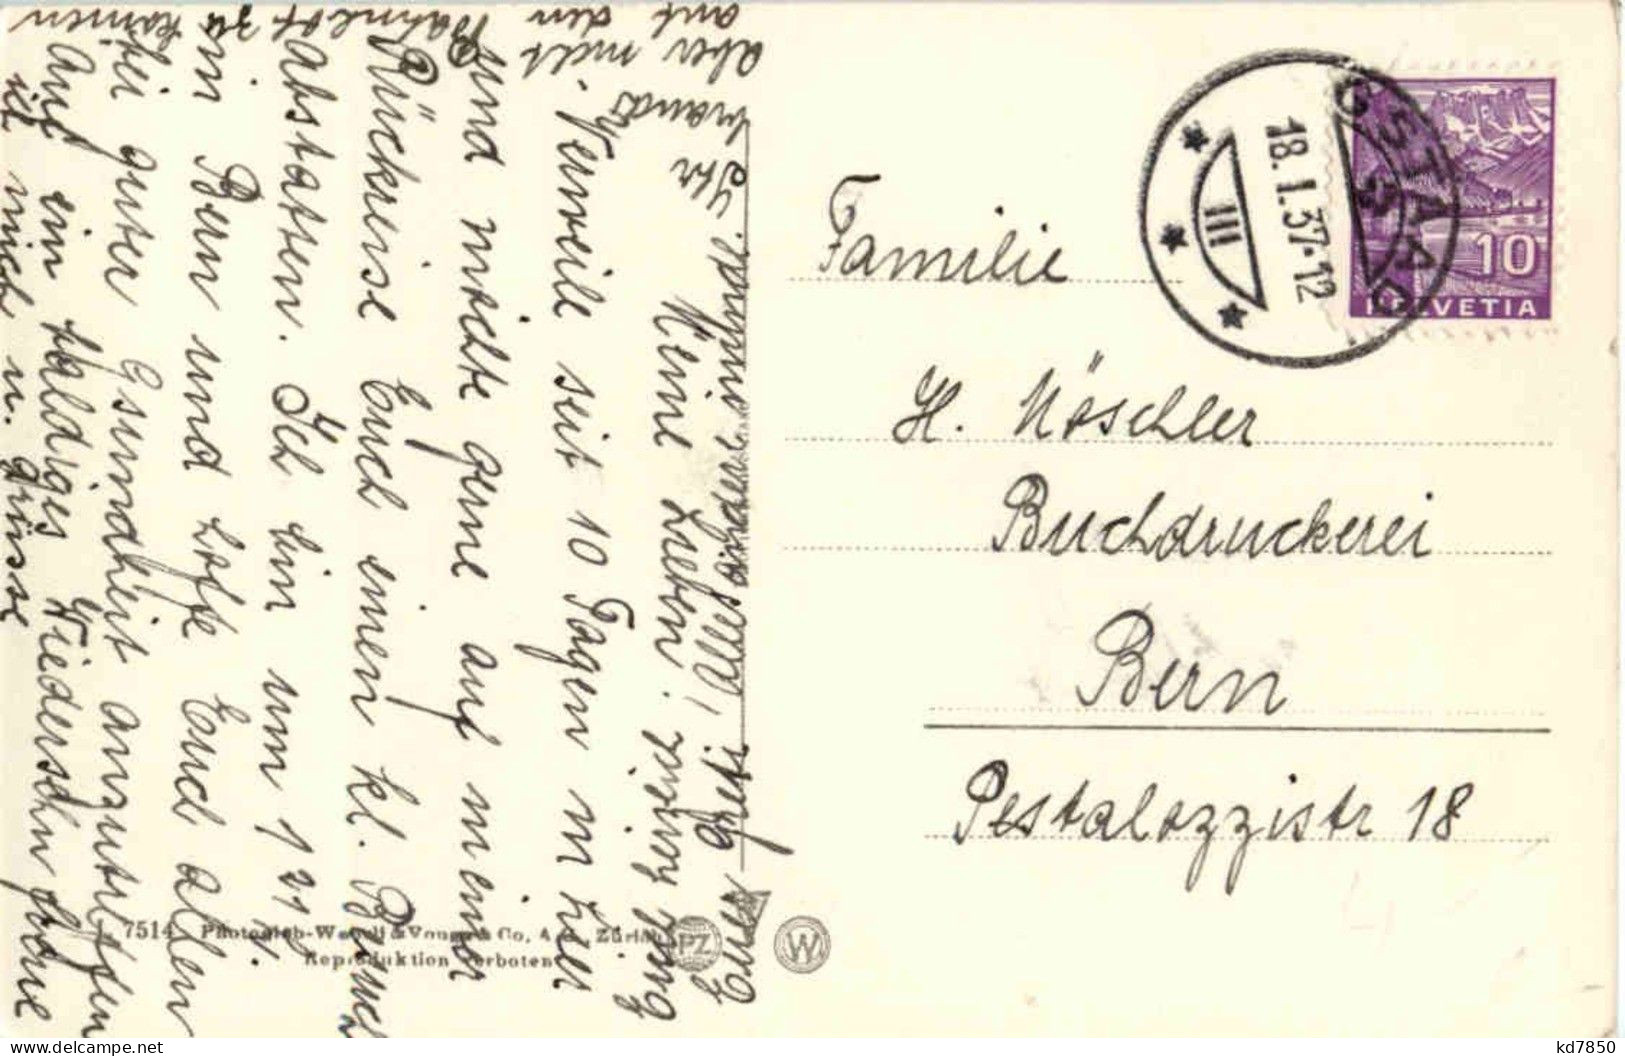 Meine Lieben!
Verweile seit 10 Tagen in hier
und möchte gerne auf meiner
Rückreise Euch einen kl. Besuch
abstatten. Ich bin um 1
in Bern und hoffe Euch allen
bei guter Gsundheit anzutreffen
Auf ein baldiges Wiedersehn freue
ich mich u. grüsse
Euer
Ihr braucht
aber nicht
auf den
Bahnhof zu
kommen
Familie
H. Möschler
Buchdruckerei
Bern
Pestalozzistr 18
GSTAAD
18.I.37-12
III
10
HELVETIA
7514 Photoglob-Wehrli & Vouga & Co, A. G., Zürich
Reproduktion verboten
PZ
W
kd7850